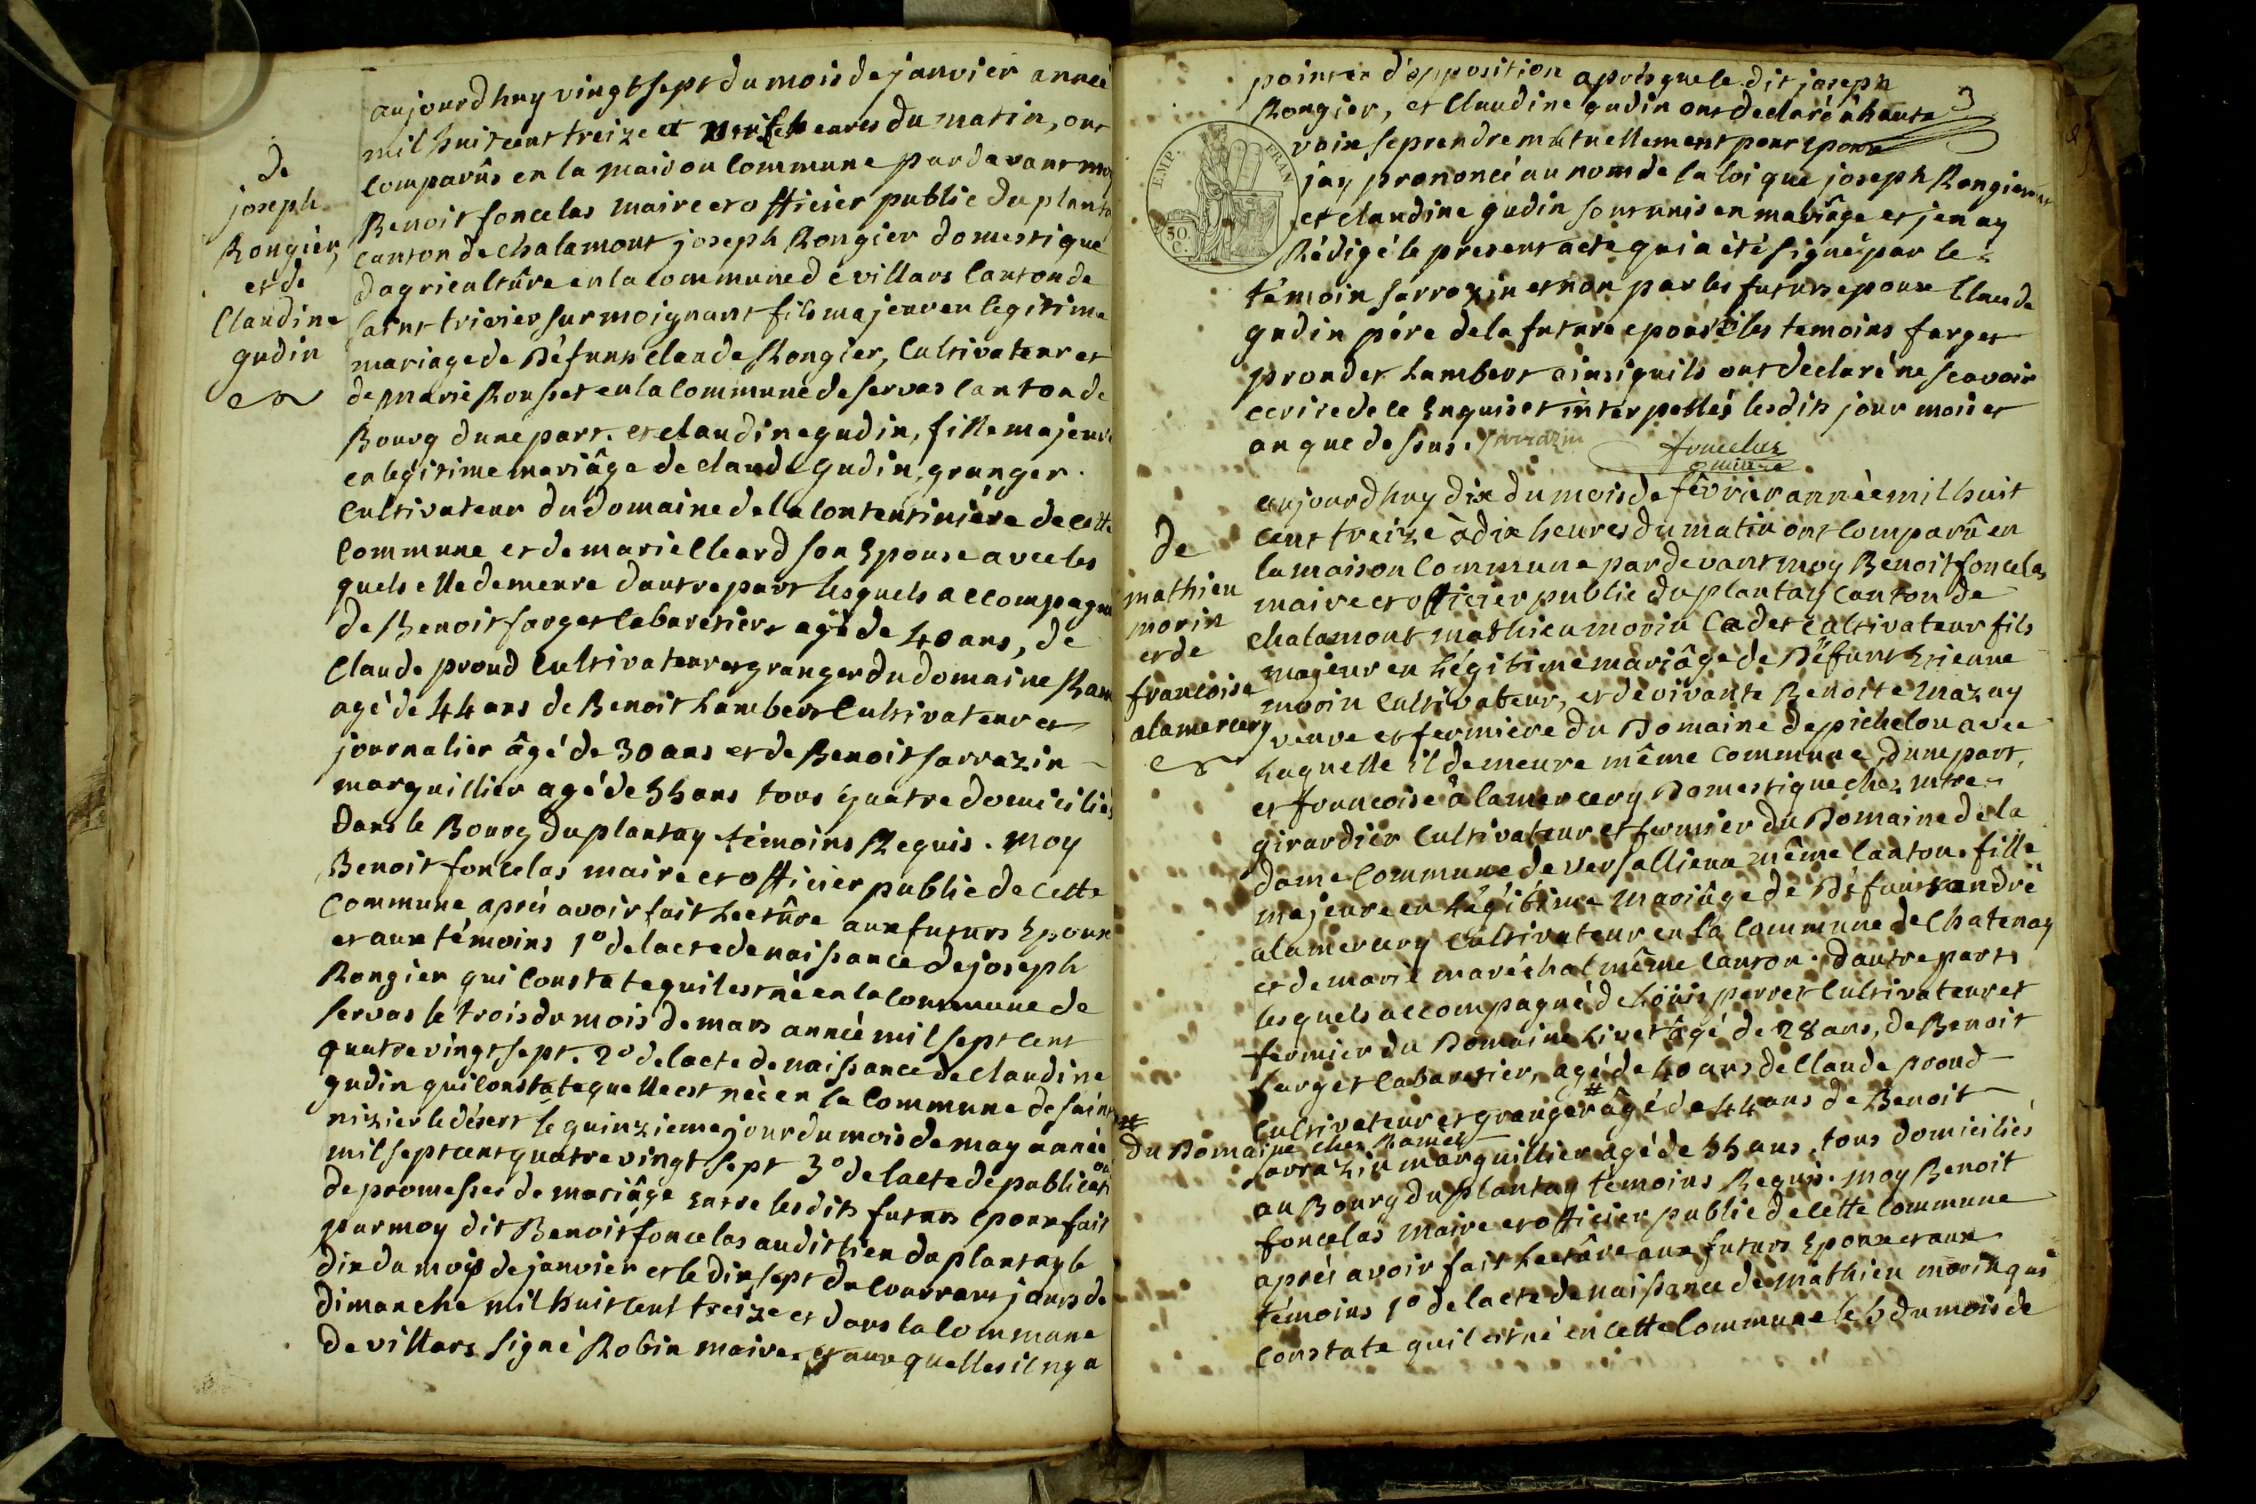 de
joseph
Rongier,
et de
Claudine
gudin
aujourdhuy vingt sept du mois de janvier année
mil huit cent treize et heures du matin, ont
comparûs en la maison commune par devant moy
Benoit foncelas maire et officier public du plantay
canton de chalamont joseph Rongier domestique
dagricultûre en la commune de villars canton de
saint trivier sur moignant fils majeur en legitime
mariage de Défunts claude Rongier, Cultivateur et
de marie Rousset en la commune de servas canton de
Bourg dune part. et claudine gudin, fille majeure
en legitime mariâge de claude gudin, granger
Cultivateur du domaine de la contentiniére de cette
Commune et de marie Cleard son Epouse avec les
quels elle demeure dautre part lesquels accompagné
de Benoit farget Cabaretier, agé de 40 ans, de
Claude proud Cultivateur et granger du domaine
agé de 44 ans de Benoit Lambert Cultivateur et
journalier âgé de 30 ans et de Benoit sarrazin
marguillier agé de 55 ans tous quatre domiciliés
dans le Bourg du plantay témoins Requis. moy
Benoit foncelas maire et officier public de cette
Commune aprés avoir fait Lectûre aux futurs Epoux
et aux témoins 1° de lacte de naissance de joseph
Rongier qui constate quil est né en la commune de
servas le trois du mois de mars année mil sept cent
quatre vingt sept. 2° de lacte de naissance de claudine
gudin qui constate quelle est née en la commune de saint
nizier le désert le quinzieme jour du mois de may année
mil sept cent quatre vingt sept 3° de lacte de publication
de promesses de mariâge entre les dits futurs epoux fait
par moy dit Benoit foncelas au dit lieu du plantay le
dix du mois de janvier et le dix sept du courrant jours de
dimanche mil huit cent treize et dans la commune
de villars signé Robin maire. et aux quelles il ny a
3
point en d'opposition aprés que le dit joseph
Rongier, et Claudine gudin ont declaré à haute
voix se prendre mutuellement pour epoux
EMP. FRAN
50
C.
jay prononcé au nom de la loi que joseph Rongier
et claudine gudin sont unis en mariâge et jen ay
Rédigé le present acte qui a été signé par le
témoin sarrazin et non par les futurs epoux Claude
gudin pére de la future epouse les temoins farget
proud et Lambert ainsi quils ont declaré ne scavoir
ecrire de ce Enquis et interpellés les dits jour mois et
an que dessus. sarrazin foncelas
maire
de
mathieu
morin
et de
francoise
alamercery
aujourdhuy dix du mois de février année mil huit
cent treize à dix heures du matin ont comparû en
la maison commune par devant moy Benoit foncelas
maire et officier public du plantay canton de
chalamont mathieu morin Cadet cultivateur fils
majeur en Légitime mariâge de Défunt Etienne
morin Cultivateur, et de vivante Benoite mazuy
veuve et fermiere du Domaine de pichelou avec
Laquelle il demeure même commune, dune part,
et francoise àlamercery Domestique chez
girardier Cultivateur et fermier du Domaine de la
dame commune de versallieux même canton. fille
majeure en Légitime mariâge de Défunt andré
alamercery Cultivateur en la commune de Chatenay
et de marie maréchal même canton. dautre part,
lesquels accompagné de Loüis perret Cultivateur et
fermier du Domaine Livet âgé de 28 ans, de Benoit
farget Cabaretier, agé de 40 ans de Claude proud
Cultivateur et granger # âgé de 44 ans de Benoit
# du Domaine chez Ramel
sarrazin marguillier agé de 55 ans, tous domiciliés
au Bourg du plantay témoins Requis. moy Benoit
foncelas maire et officier public de cette commune
aprés avoir fait Lectûre aux futurs Epoux et aux
témoins 1° de lacte de naissance de mathieu morin qui
constate quil est né en cette commune le 5 du mois de